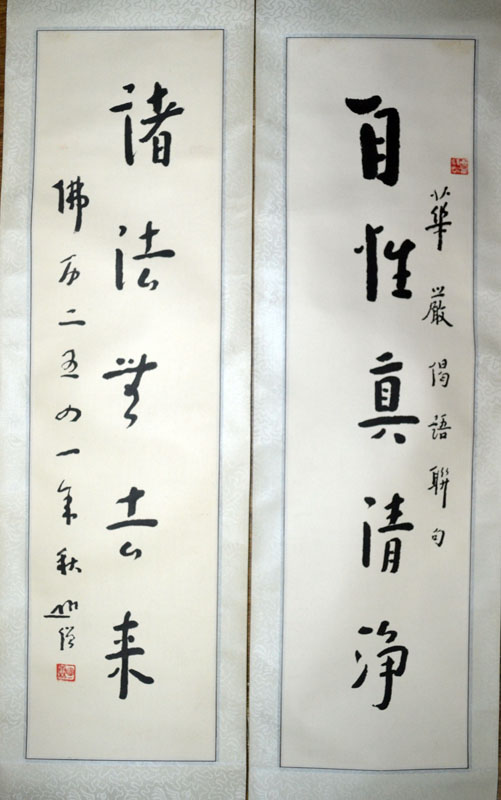 自性真清淨
華嚴偈語聯句
諸法無去来
佛历二五四一年秋